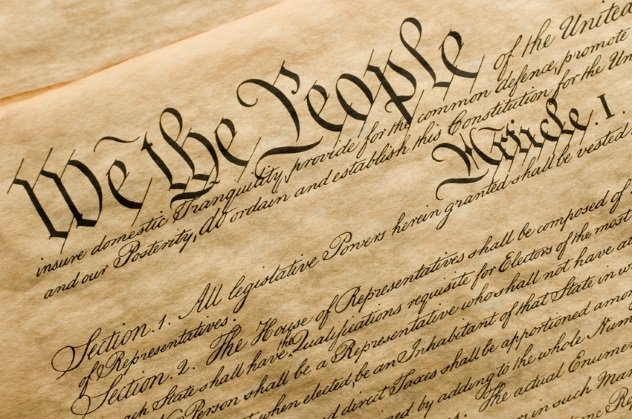 We the People of the United
insure domestic Tranquility, provide for the common defence, promote
and our Posterity, do ordain and establish this Constitution for the Un
Article. I.
Section. 1. All legislative Powers herein granted shall be vested
of Representatives.
Section. 2. The House of Representatives shall be composed of
ach State shall have the Qualifications requisite for Electors of the most
No Person shall be a Representative who shall not have at
not when elected, be an Inhabitant of that State in w
nd direct Taxes shall be apportioned amon
by adding to the whole Num
The actual Enumer
in such Man